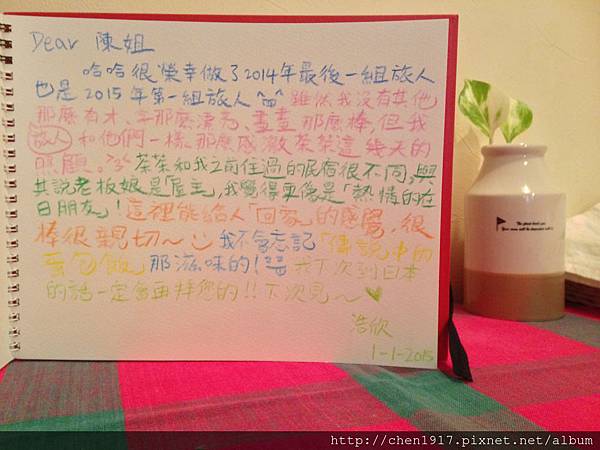 Dear 陳姐
哈哈很榮幸做了2014年最後一組旅人
也是2015年第一組旅人 雖然我沒有其他
那麼有才、字那麼漂亮、畫畫那麼棒,但我
旅人 和他們一樣那麼感激茶茶這幾天的
照顧。茶茶和我之前住過的民宿很不同,與
其說老板娘是「屋主」,我覺得更像是「熱情的在
日朋友」!這裡能給人「回家」的感覺,很
棒很親切~ 我不會忘記「傳說中的
蛋包飯」那滋味的! 我下次到日本
的話一定會再拜您的!!下次見~
浩欣
1-1-2015
http://chen1917.pixnet.net/album